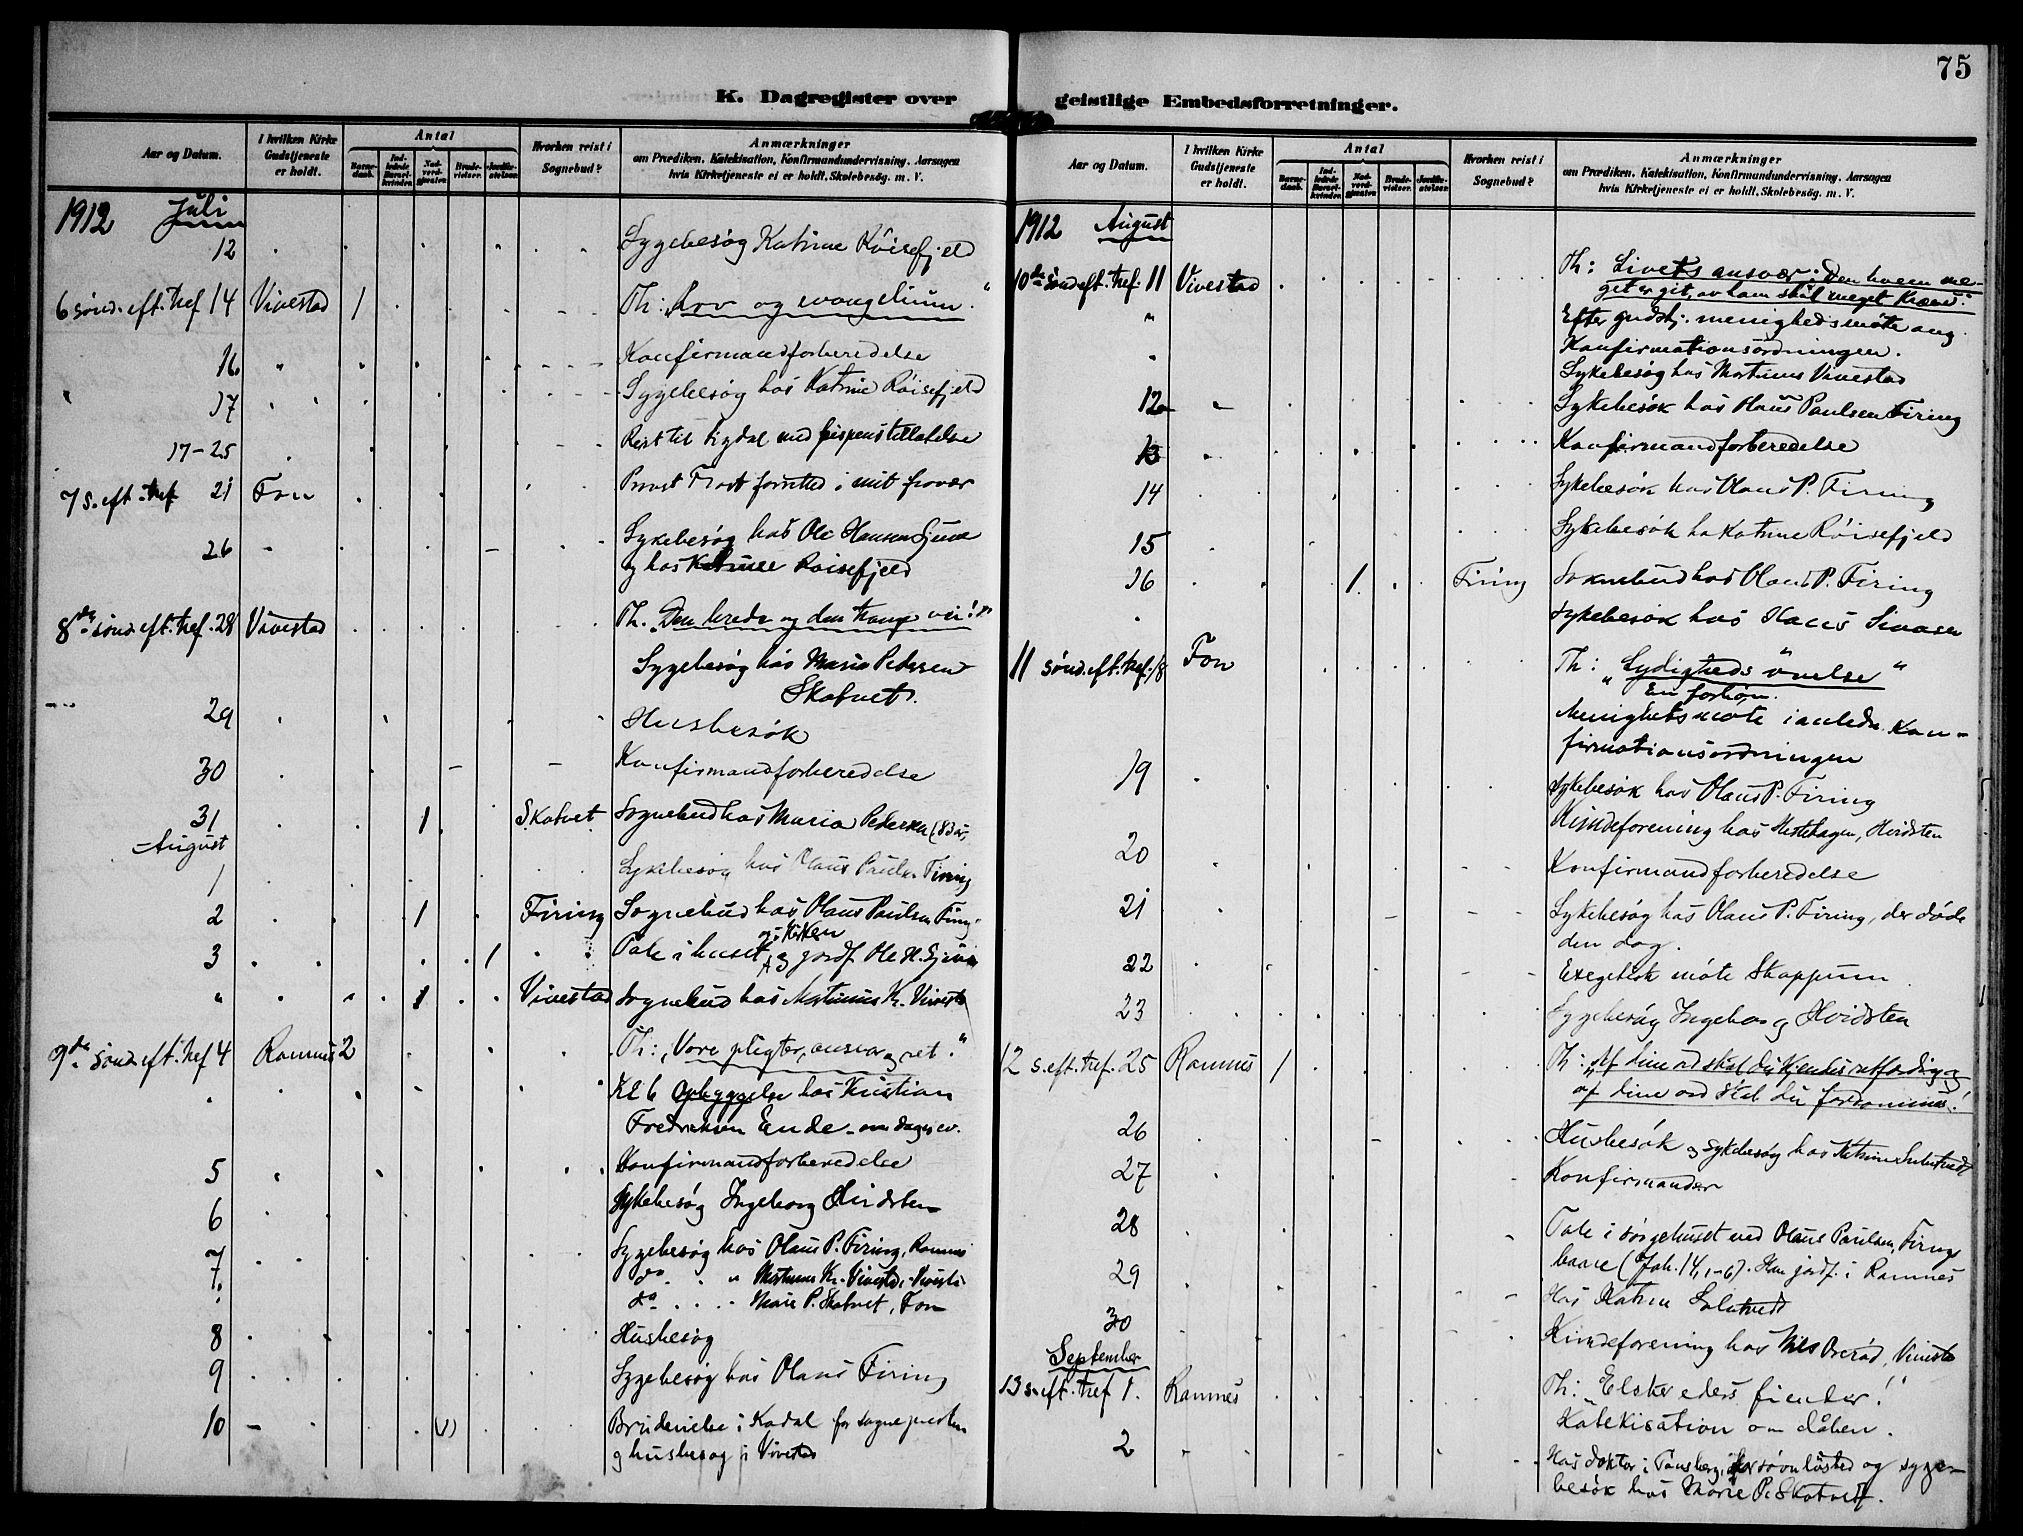 75
K. Dagregister over geistlige Embedsforretninger.
Aar og Datum. I hvilken Kirke Gudstjeneste er holdt. Antal Barne-daab. Ind-ledede Barsel-kvinder. Nad-verd-gjæster. Brude-vielser. Jordfæ-stelser. Hvorhen reist i Sognebud? Anmærkninger
om Prædiken, Katekisation, Konfirmandundervisning, Aarsagen
hvis Kirketjeneste ei er holdt, Skolebesøg. m. V.
1912 Juli
12 Sygebesøg Katrine Röisefjeld
6 sönd. eft. tref 14 Vivestad 1 Th: "Lov og evangelium."
16. Konfirmandforberedelse
17 Sygebesøg hos Katrine Röisefjeld
17-25 Reist til Sigdal med bispens tilladelse
7 s. eft. tref 21 Fon Provst forretted i mit fravær
26 Sykebesøg hos Ole Hansen
og hos Katrine Röisefjeld
8de sönd. eft. tref. 28 Vivestad Th. "Den brede og den trange vei!"
Sygebesøg hos Maria Pedersen
Skatvet.
29 Husbesøk
30 Konfirmandforberedelse
31 1 Skatvet Sognebud hos Maria Pedersen
August
1 Sykebesøg hos Olaus Paulsen Firing
2 1 Firing Sognebud hos Olaus Paulsen Firing
og i kirken
3 1 Tale i huset jordf Ole H.
" 1 Vivestad Sognebud hos Martinius Kr. Vivestad
9de sönd. eft. tref 4 Ramnes 2 Th: "Vore pligter, ansvar og ret."
Kl 6 Opbyggelse hos Kristian
Fredriksen Ende - om dagens ev.
5 Konfirmandforberedelse
6 Sykebesøg Ingeborg Hvidsten
7 Sygebesøg hos Olaus P. Firing, Ramnes
7. do " Martinius Kr. Vivestad, Vivestad
do " Marie P. Skatvet, Fon
8 Husbesøg
9 Sygebesøg hos Olaus Firing
10 (1) Brudevielse i Kodal for sognepresten
og husbesøg i Vivestad
Aar og Datum. I hvilken Kirke Gudstjeneste er holdt. Antal Barne-daab. Ind-ledede Barsel-kvinder. Nad-verd-gjæster. Brude-vielser. Jordfæ-stelser. Hvorhen reist i Sognebud? Anmærkninger
om Prædiken, Katekisation, Konfirmandundervisning, Aarsagen
hvis Kirketjeneste ei er holdt, Skolebesög. m. V.
1912 August
10de sönd. eft. tref. 11 Vivestad Th: Livets ansvar: Den hvem me-
get er git, av ham skal meget kræves."
" Efter gudstj. menighedsmöte ang.
Konfirmationsordningen.
" Sykebesøg hos Martinius Vivestad
12 Sykebesøk hos Olaus Paulsen Firing
13 Konfirmandforberedelse
14 Sykebesøk hos Olaus P. Firing
15 Sykebesøk ho Katrine Röisefjeld
16 1 Firing Soknebud hos Olaus P. Firing
Sykebesøk hos
11 sönd. eft. tref. 18 Fon Th: "Lydigheds övelse"
En forbön.
Menighetsmöte i anledn. Kon-
firmationsordningen
19 Sykebesøk hos Olaus P. Firing
Kvindeforening hos Hestehagen, Hvidsten
20 Konfirmandforberedelse
21 Sykebesøg hos Olaus P. Firing, der döde
den dag.
22 Exegetisk möte Skoppum
23 Sygebesøg Ingeborg Hvidsten
12 s. eft. tref. 25 Ramnes 1 Th: "Af dine ord skal du kjendes retfærdig og
af dine ord skal du fordömmes!"
26 Husbesøk og sykebesøg hos Katrine
27 Konfirmander
28 Tale i sörgehuset ved Olaus Paulsen, Firings
baare (Joh. 14, 1-6). Han jordf. i Ramnes
29 Hos Katrine
30 Kvindeforening hos Nils, Vivestad
September
13 s. eft. tref 1. Ramnes Th: "Elsker eders fiender!"
Katekisation om dåben.
2 Hos doktor i Tønsberg, for søvnløshed og syge-
besøk hos Marie P. Skatvet.